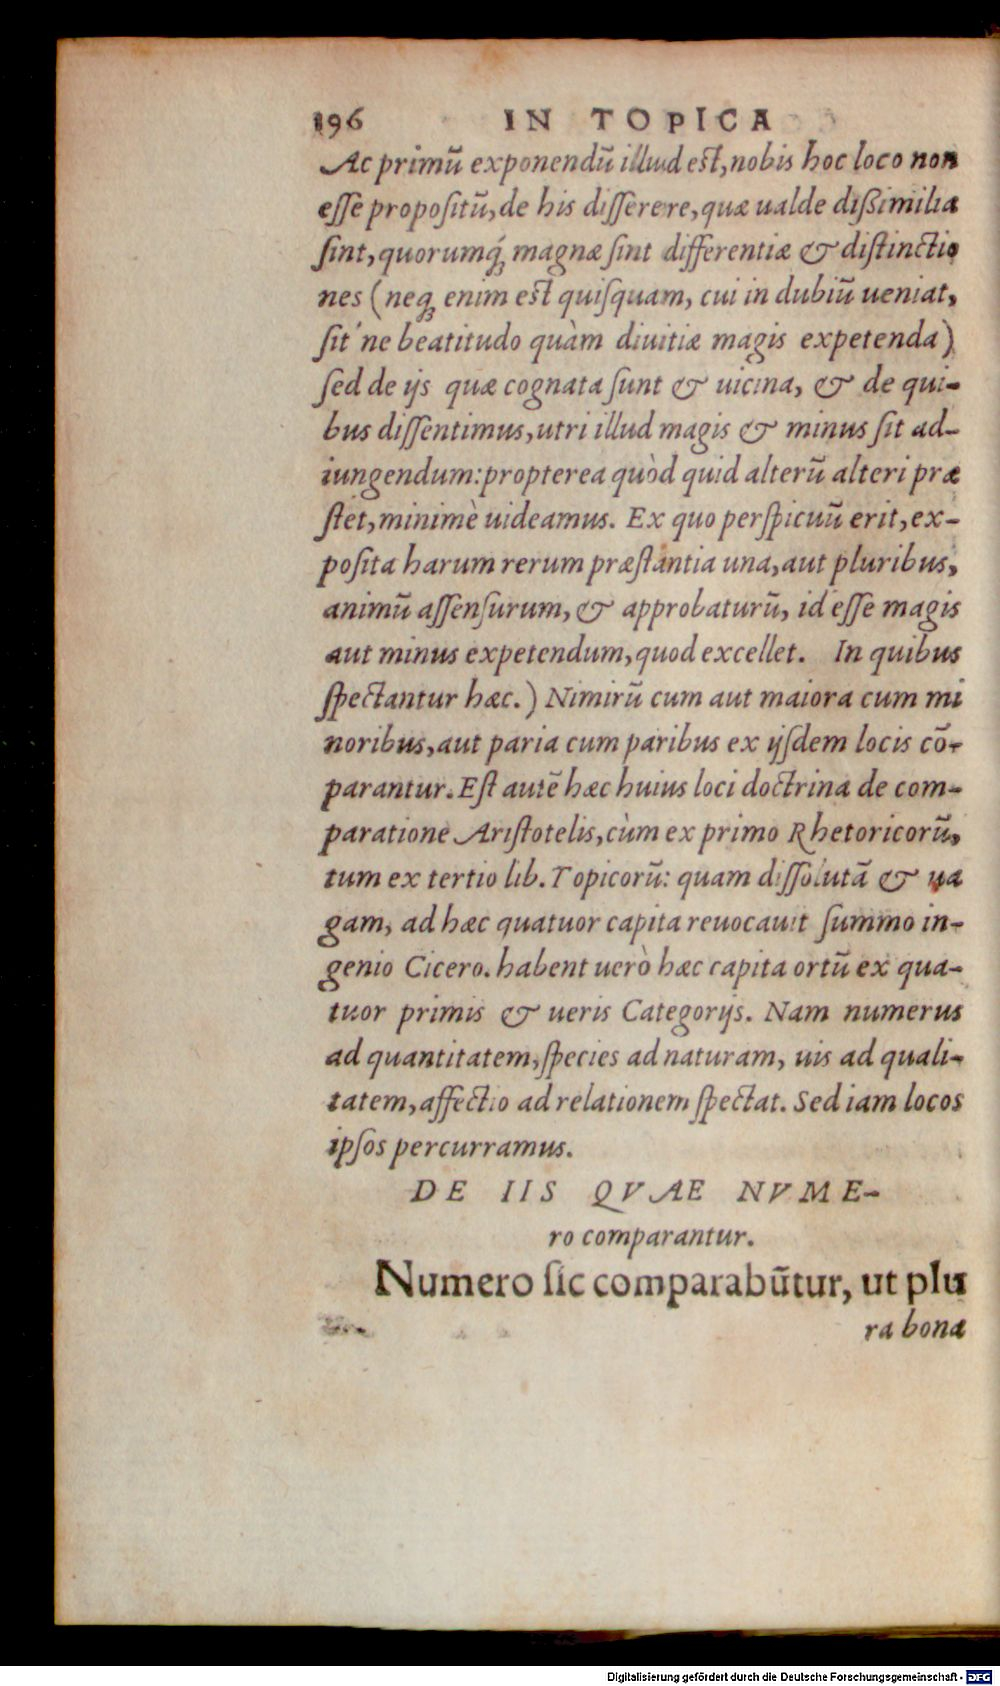 196 IN TOPICA
Ac primū exponendū illud est, nobis hoc loco non
esse propositū, de his disserere, quæ ualde dißimilia
sint, quorumq́; magnæ sint differentiæ & distinctio
nes (neq; enim est quisquam, cui in dubiū ueniat,
sit'ne beatitudo quàm diuitiæ magis expetenda)
sed de ijs quæ cognata sunt & uicina, & de qui-
bus dissentimus, utri illud magis & minus sit ad-
iungendum: propterea quòd quid alterū alteri præ
stet, minimè uideamus. Ex quo perspicuū erit, ex-
posita harum rerum præstantia una, aut pluribus,
animū assensurum, & approbaturū, id esse magis
aut minus expetendum, quod excellet. In quibus
spectantur hæc.) Nimirū cum aut maiora cum mi
noribus, aut paria cum paribus ex ijsdem locis cō-
parantur. Est autē hæc huius loci doctrina de com-
paratione Aristotelis, cùm ex primo Rhetoricorū,
tum ex tertio lib. Topicorū: quam dissolutā & ua
gam, ad hæc quatuor capita reuocauit summo in-
genio Cicero. habent uerò hæc capita ortū ex qua-
tuor primis & ueris Categorijs. Nam numerus
ad quantitatem, species ad naturam, uis ad quali-
tatem, affectio ad relationem spectat. Sed iam locos
ipsos percurramus.
DE IIS QVAE NVME-
ro comparantur.
Numero sic comparabūtur, ut plu
ra bona
Digitalisierung gefördert durch die Deutsche Forschungsgemeinschaft - DFG